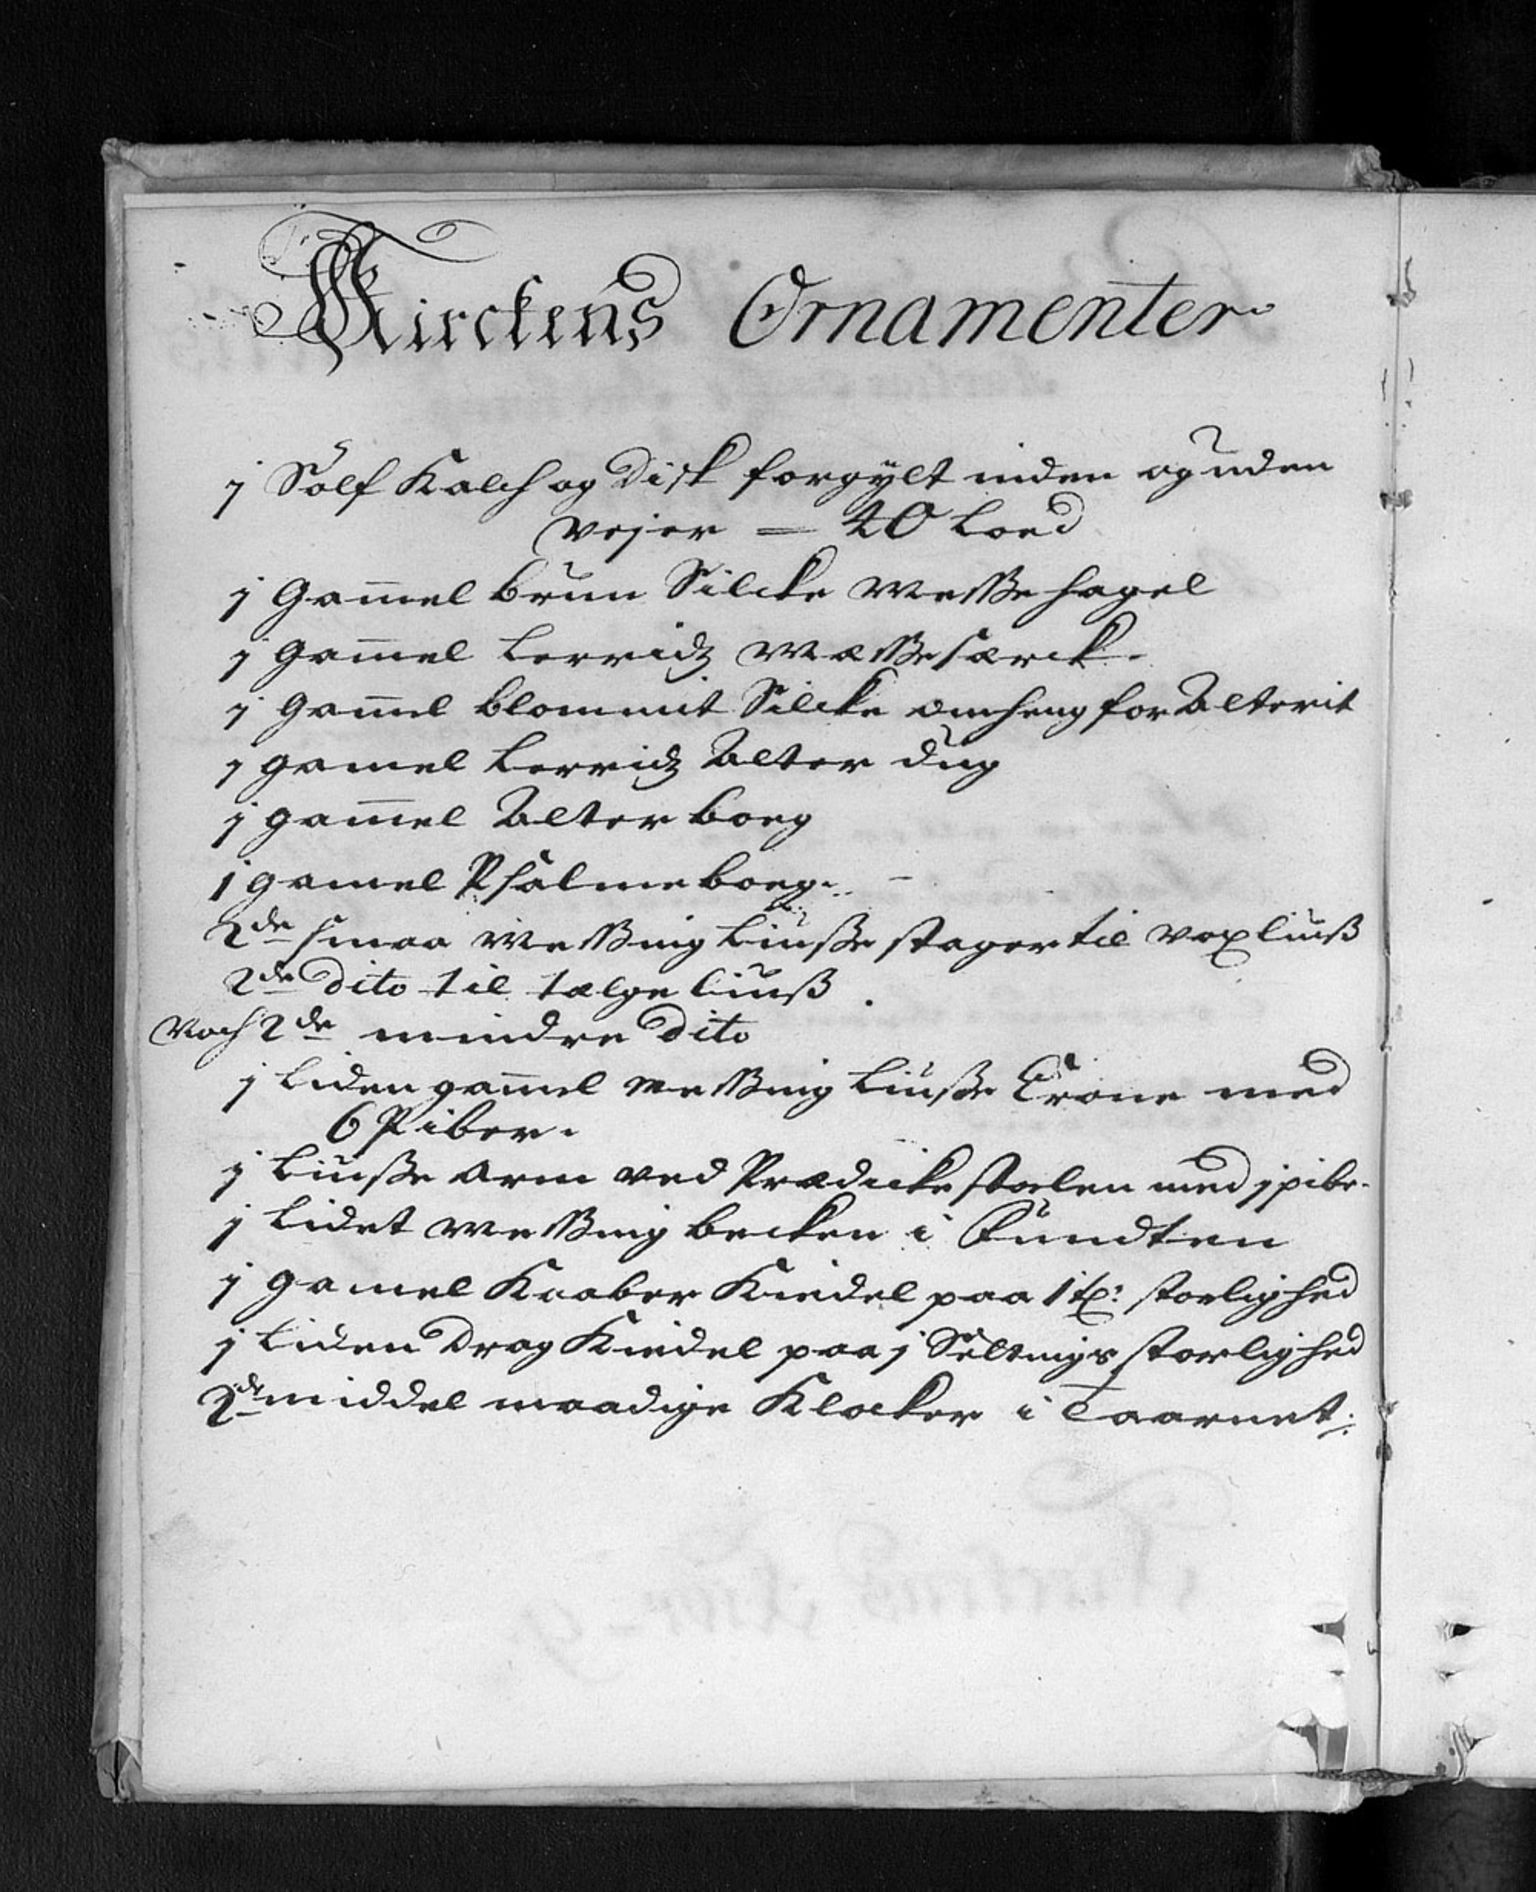 Kirckens Ornamenter
j Sølf Kalch og Disk forgylt inden og uden
vejer = 40 Loed
j Gam̄el brun Silcke Messe hagel
j Gam̄el Lerridz Mæsse særck.
j Gam̄el blommit Silcke omheng for Alterit
j gamel Lerridz Alter dug
j gam̄el Alter boeg
j gamel Psalme boeg.
2de smaa Messing Liusse stager til vox liuss
2de Dito til tælge liuss
Noch 2de mindre Dito
j Liden gam̄el Messing Liusse Crone med
6 Piber.
j Liusse Arm ved Prædicke stoelen med j pibe.
j Lidet Messing becken i Funndten
j gamel Kaaber Kiedel paa 1 tø: storlighed
j Liden Drag Kiedel paa j Seltings storlighed
2de middel maadige Klocker i Taarnet.